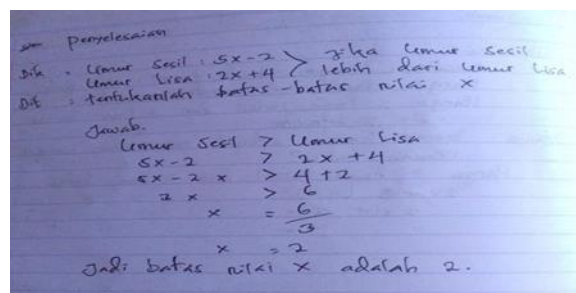 Penyelesaian
Dik : Umur Sesil : 5x-2 > Jika Umur Sesil
Umur Lisa : 2x+4 lebih dari Umur Lisa
Dit : tentukanlah batas-batas nilai x
Jawab.
Umur Sesil > Umur Lisa
5x-2 > 2x+4
5x-2x > 4+2
3x > 6
x = 6/3
x = 2
Jadi batas nilai x adalah 2.